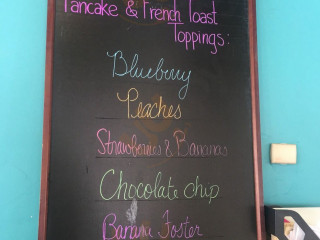 Pancake & French Toast
Toppings:
Blueberry
Peaches
Strawberries & Bananas
Chocolate chip
Banana Foster